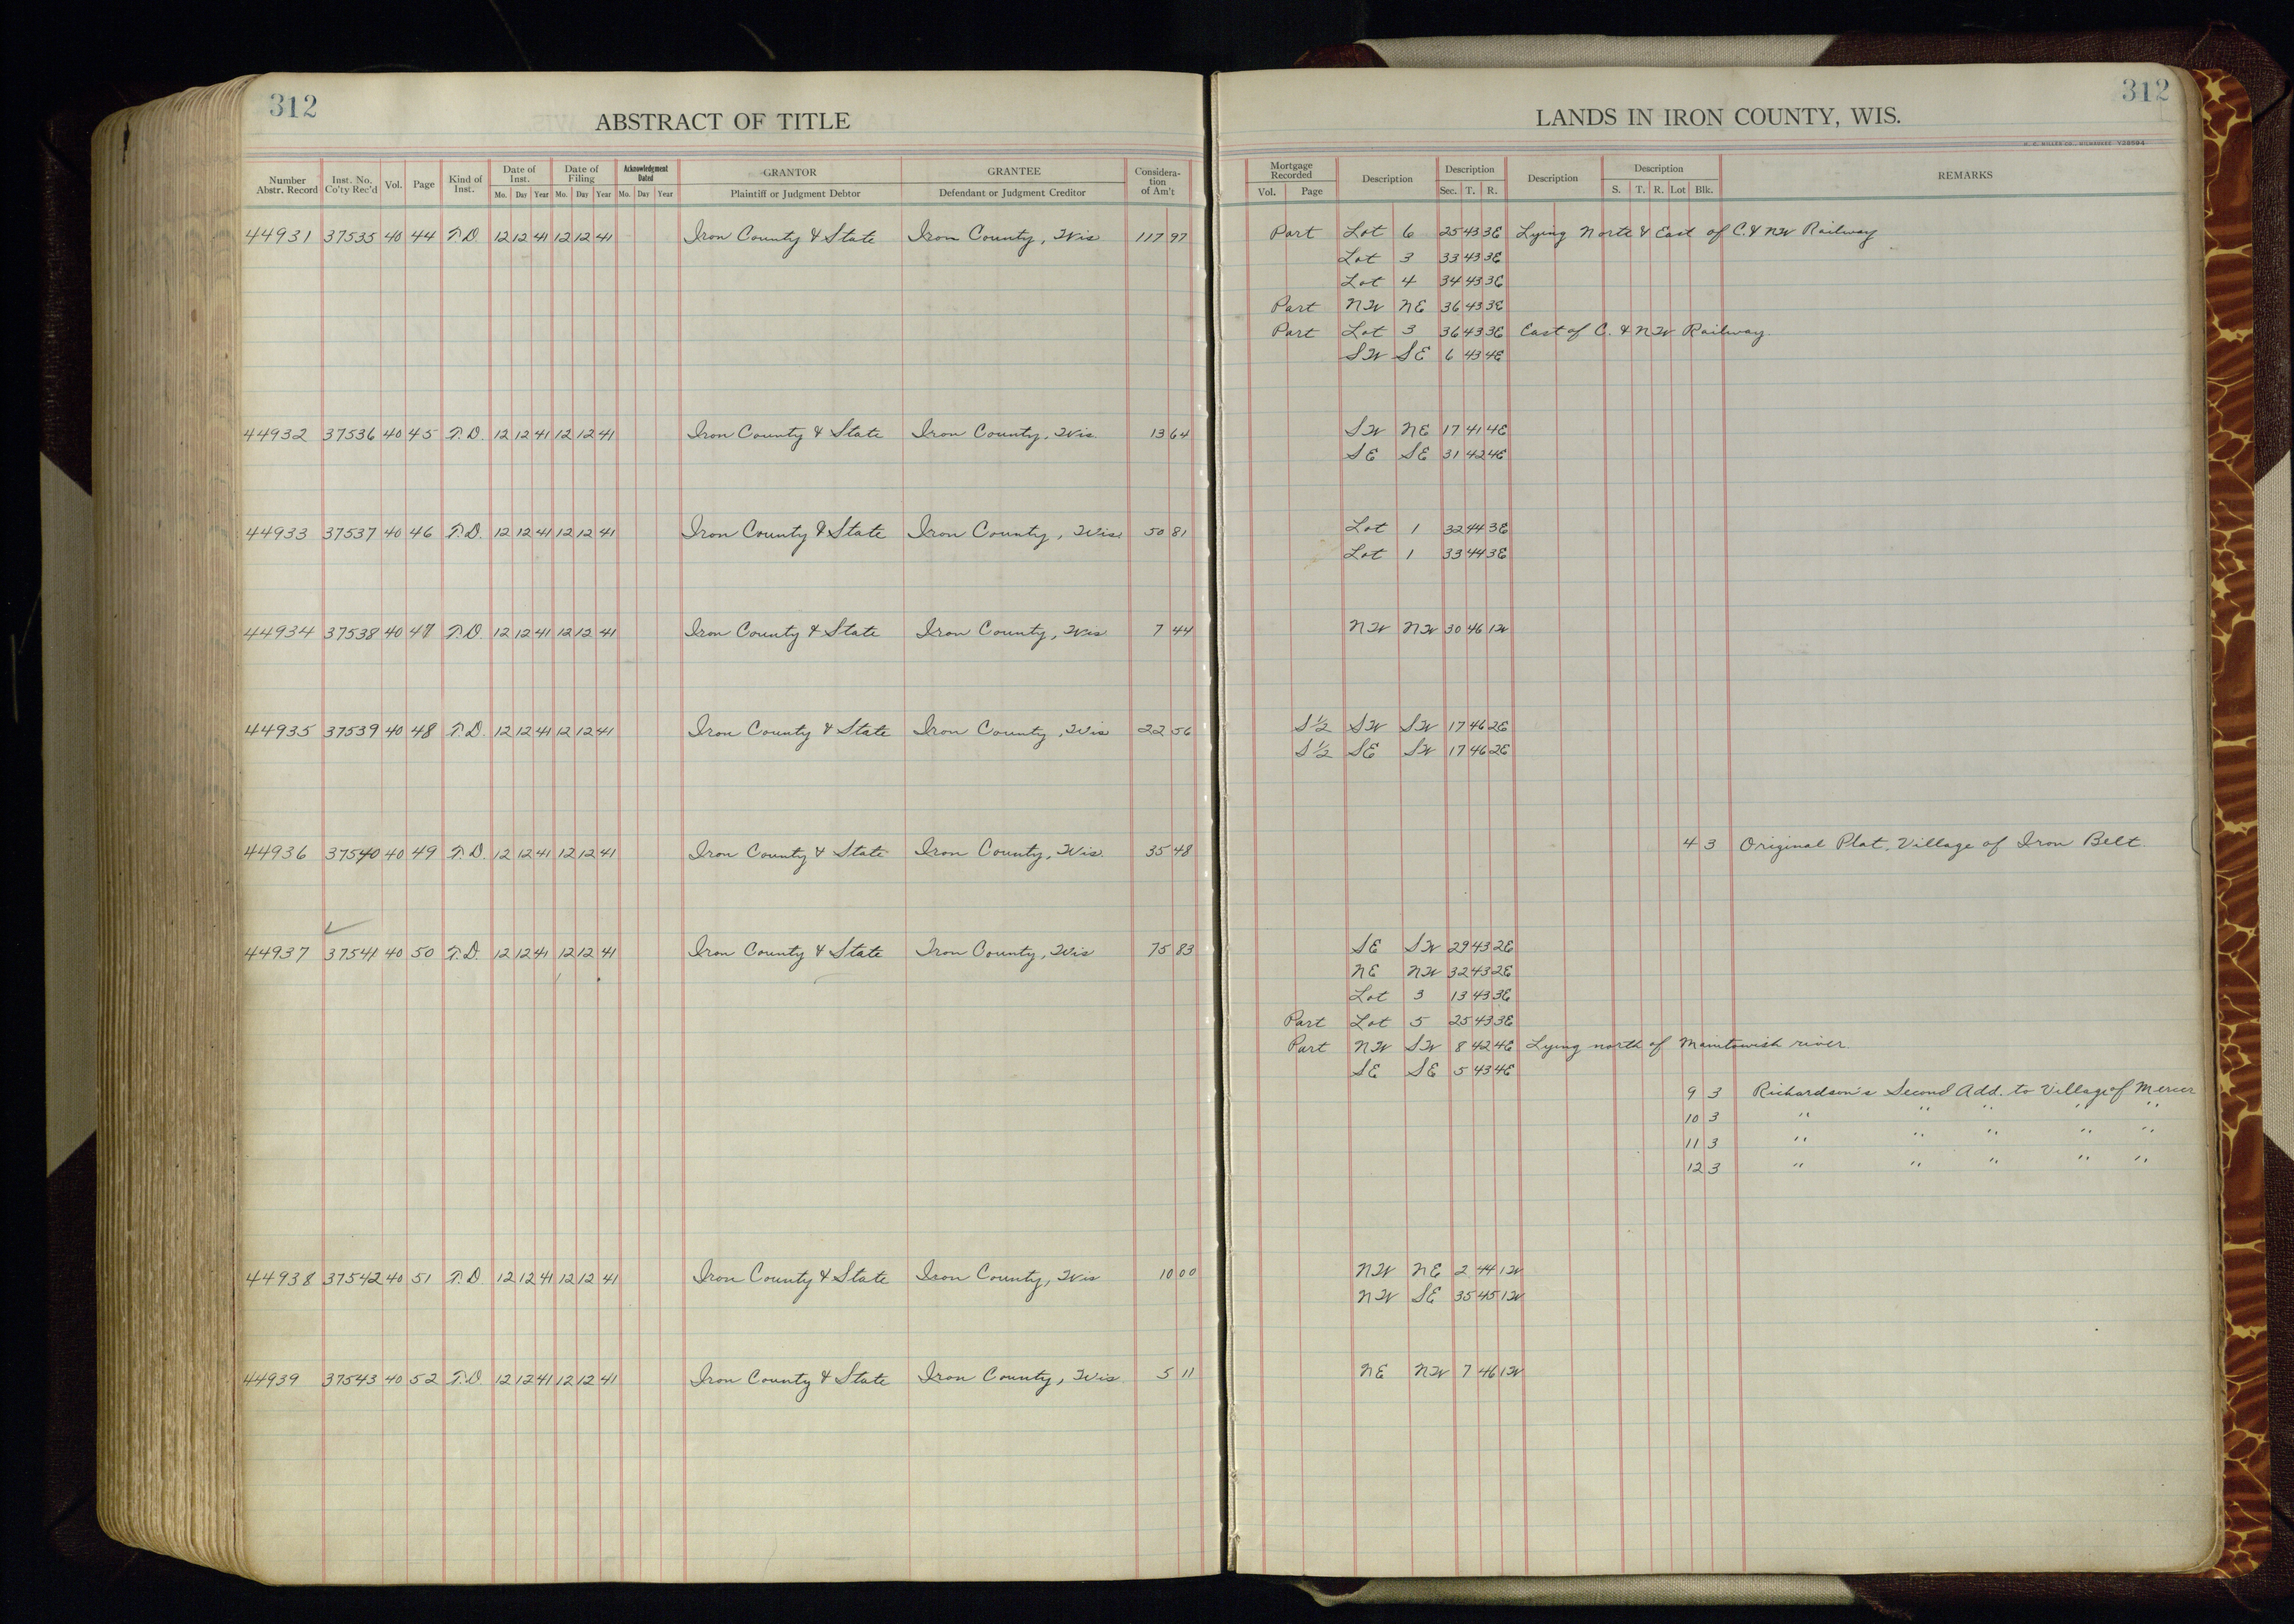 312
ABSTRACT OF TITLE
Number Abstr. Record Inst. No. Co'ty Rec'd Vol. Page Kind of Inst. Date of Inst. Mo. Day Year Date of Filing Mo. Day Year Acknowledgment Dated Mo. Day Year GRANTOR Plaintiff or Judgment Debtor GRANTEE Defendant or Judgment Creditor Considera-tion of Am't
44931 37535 40 44 T.D. 12 12 41 12 12 41 Iron County & State Iron County, Wis 117 97
44932 37536 40 45 T.D. 12 12 41 12 12 41 Iron County & State Iron County, Wis. 13 64
44933 37537 40 46 T.D. 12 12 41 12 12 41 Iron County & State Iron County, Wis 50 81
44934 37538 40 47 T.D. 12 12 41 12 12 41 Iron County & State Iron County, Wis 7 44
44935 37539 40 48 T.D. 12 12 41 12 12 41 Iron County & State Iron County, Wis 22 56
44936 37540 40 49 T.D. 12 12 41 12 12 41 Iron County & State Iron County, Wis. 35 48
44937 37541 40 50 T.D. 12 12 41 12 12 41 Iron County & State Iron County, Wis 75 83
44938 37542 40 51 T.D. 12 12 41 12 12 41 Iron County & State Iron County, Wis 10 00
44939 37543 40 52 T.D. 12 12 41 12 12 41 Iron County & State Iron County, Wis. 5 11
312
LANDS IN IRON COUNTY, WIS.
H. C. MILLER CO., MILWAUKEE
Mortgage Recorded Vol. Page Description Description Sec. T. R. Description Description S. T. R. Lot Blk. REMARKS
Part Lot 6 25 43 3E Lying North & East of C. & NW Railway
Lot 3 33 43 3E
Lot 4 34 43 3E
Part NW NE 36 43 3E
Part Lot 3 36 43 3E East of C. & NW Railway.
SW SE 6 43 4E
SW NE 17 41 4E
SE SE 31 42 4E
Lot 1 32 44 3E
Lot 1 33 44 3E
NW NW 30 46 1W
S½ SW SW 17 46 2E
S½ SE SW 17 46 2E
4 3 Original Plat, Village of Iron Belt.
SE SW 29 43 2E
NE NW 32 43 2E
Lot 3 13 43 3E
Part Lot 5 25 43 3E
Part NW SW 8 42 4E Lying north of Manitowish river.
SE SE 5 43 4E
9 3 Richardson's Second Add. to Village of Mercer
10 3 " " " " "
11 3 " " " " "
12 3 " " " " "
NW NE 2 44 1W
NW SE 35 45 1W
NE NW 7 46 1W